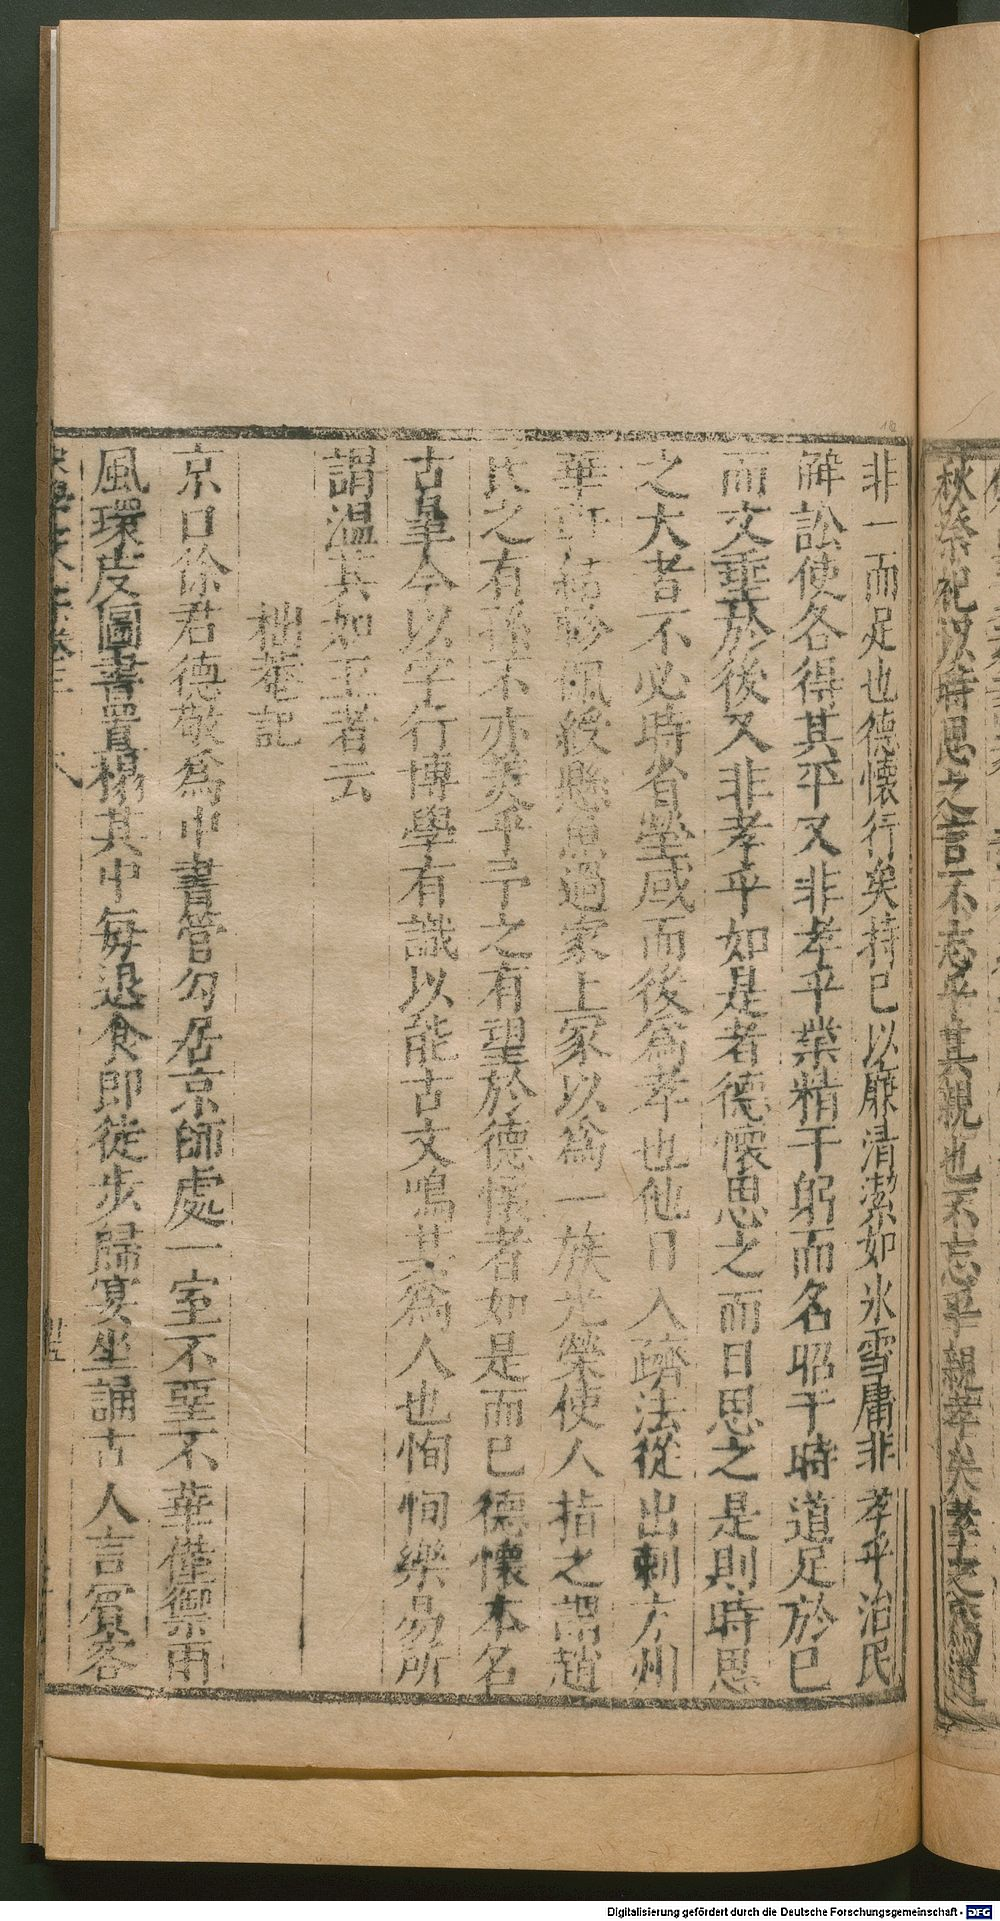 秋祭祀以時思之言不忘乎其親也不忘乎親孝矣孝之爲道
非一而足也德懷行矣持已以廉清潔如氷雪庸非孝乎治民
解訟使各得其平又非孝乎業精于躬而名昭于時道足於已
而文垂於後又非孝乎如是者德懷思之而日思之是則時思
之大者不必時省塋域而後爲孝也他日入躋法從出刺方州
華軒結駟佩綬懸魚過家上冢以爲一族光榮使人指之謂趙
氏之有孫不亦美乎予之有望於德懷者如是而已德懷本名
古臯今以字行博學有識以能古文鳴其爲人也恂恂樂易所
謂溫其如玉者云
拙菴記
京口徐君德敬爲中書管勾居京師處一室不堊不華僅禦雨
風環庋圖書置榻其中每退食即徒步歸宴坐誦古人言賓客
宋學士文粹卷三 八